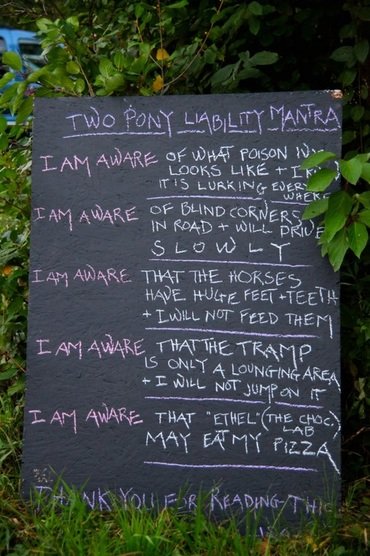 TWO PONY LIABILITY MANTRA
I AM AWARE OF WHAT POISON IVY
LOOKS LIKE + I KNOW
IT IS LURKING EVERY
WHERE
I AM AWARE OF BLIND CORNERS
IN ROAD + WILL DRIVE
SLOWLY
I AM AWARE THAT THE HORSES
HAVE HUGE FEET + TEETH
+ I WILL NOT FEED THEM
I AM AWARE THAT THE TRAMP
IS ONLY A LOUNGING AREA
+ I WILL NOT JUMP ON IT
I AM AWARE THAT "ETHEL" (THE CHOC.
LAB)
MAY EAT MY PIZZA
THANK YOU FOR READING THIS